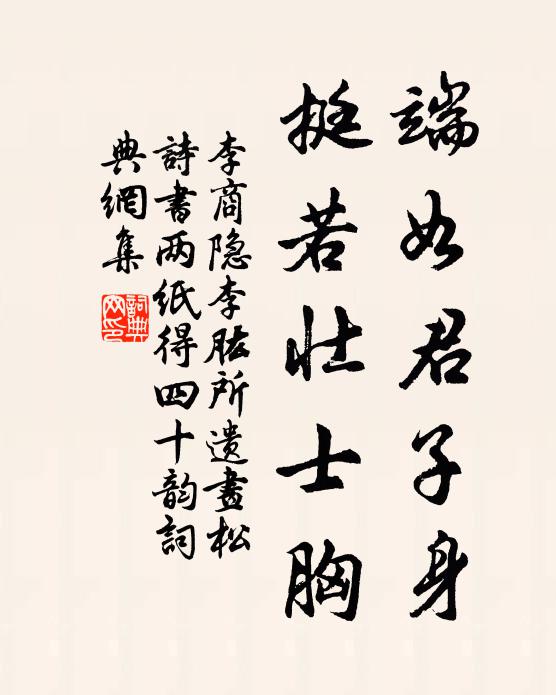 端如君子身
挺若壮士胸
李商隐李肱所遺畫松
詩書两紙得四十韵詞
典網集
詞典
网印